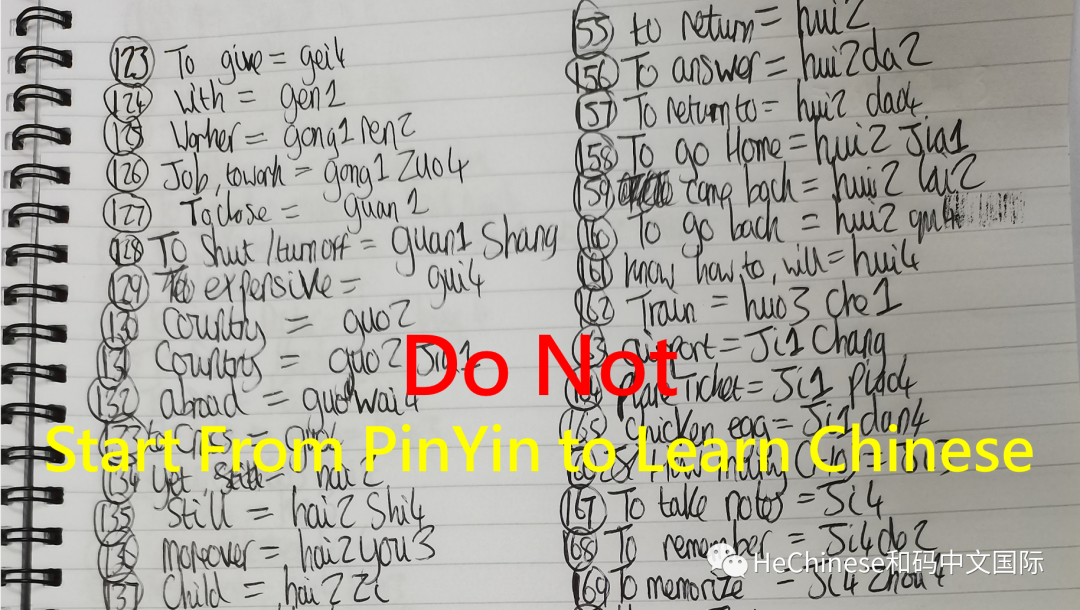 123 To give = gei4
124 with = gen1
125 Worker = gong1 ren2
126 Job, to work = gong1 Zuo4
127 To close = guan1
128 To Shut /turn off = guan1 Shang
129 expensive = gui4
130 Country = guo2
131 Country = guo2 Jia1
132 abroad = guo wai4
134 Yet, = hai2
135 Still = hai2 Shi4
136 moreover = hai2 you3
137 Child = hai2 Zi
155 to return = hui2
156 To answer = hui2 da2
157 To return to = hui2 dao4
158 To go Home = hui2 Jia1
159 Come back = hui2 lai2
160 To go back = hui2
161 know how to, will = hui4
162 Train = huo3 che1
airport = Ji1 Chang
plane Ticket = Ji1 piao4
165 chicken egg = Ji1 dan4
167 To take notes = Ji4
168 To remember = Ji4 de2
169 To memorize = Ji4 Zhou4
Do Not
Start From PinYin to Learn Chinese
HeChinese和码中文国际